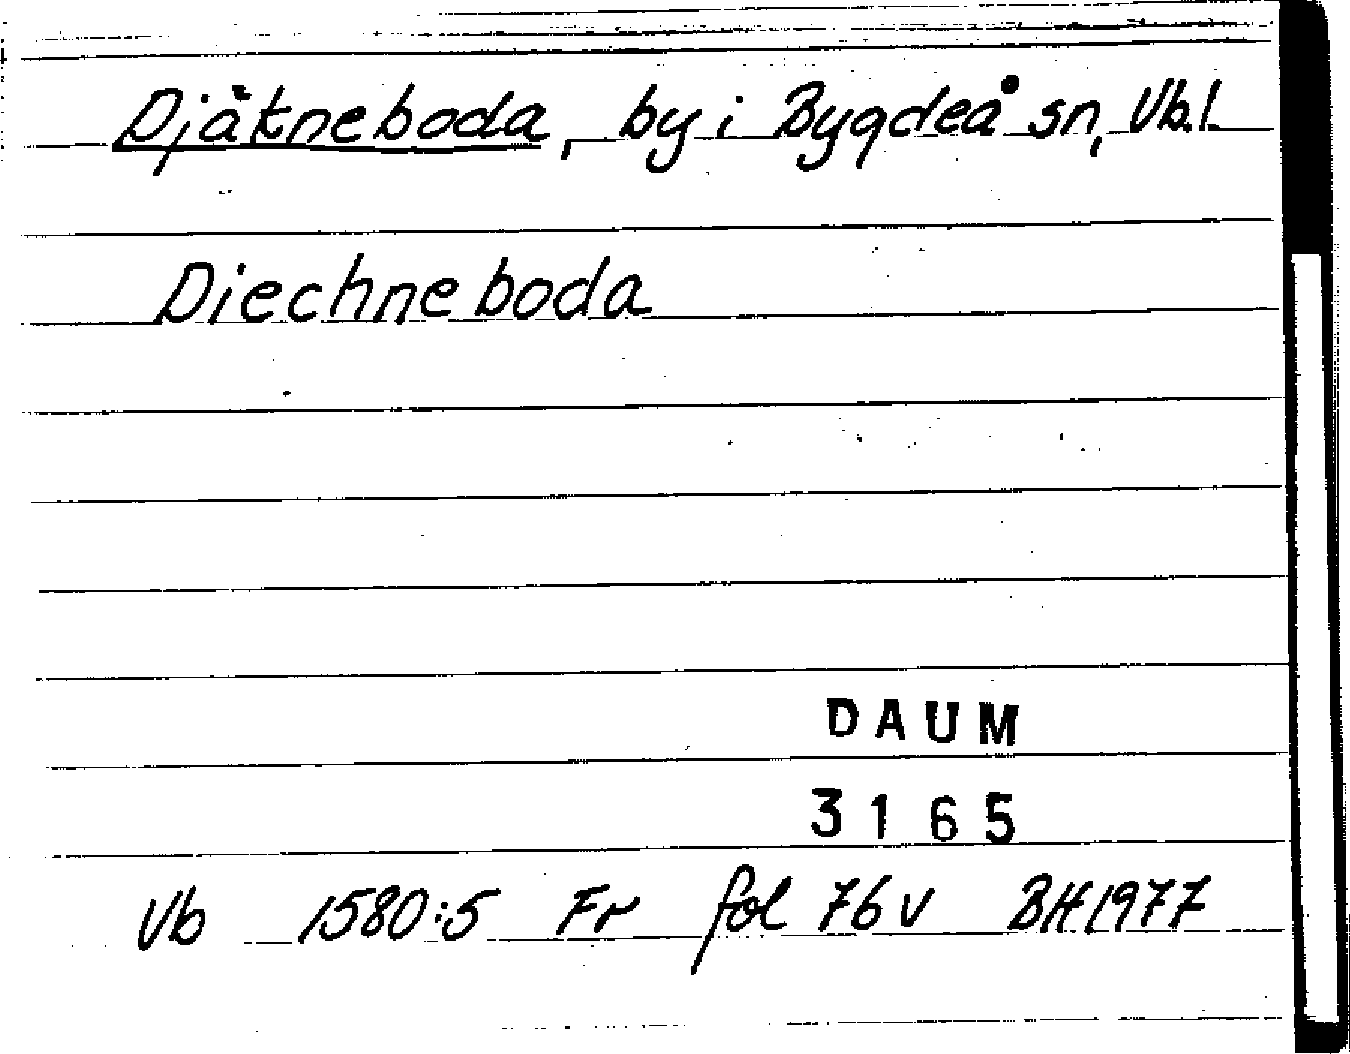 Djäkneboda, by i Bygdeå sn, Vb.l.
Diechneboda
DAUM
3165
Vb 1580:5 Fr fol 76 v BH 1977